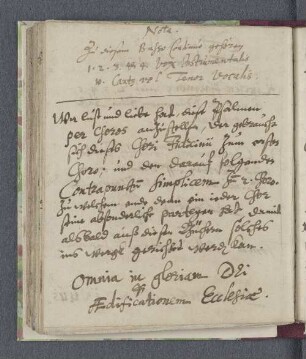 Nota.
Zu diesem Basso Continuo gehören
1. 2. 3. 4. Vox Instrumentalis
u. Tenor Vocalis.
Wer lust und liebe hat, diese Psalmen
per Choros anzustellen, der gebrauche
sich dieses Chori zum ersten
Choro, und den darauf folgenden
Contrapunctum Simplicem zu 2. Choro.
zu welchem ende dann ein ieder Chor
seine absonderliche parteyen hat, damit
alsbald auß diesen Büchern solches
ins werck gerichtet werden kan.
Omnia in gloriam Dei
Ædificationem Ecclesiæ.